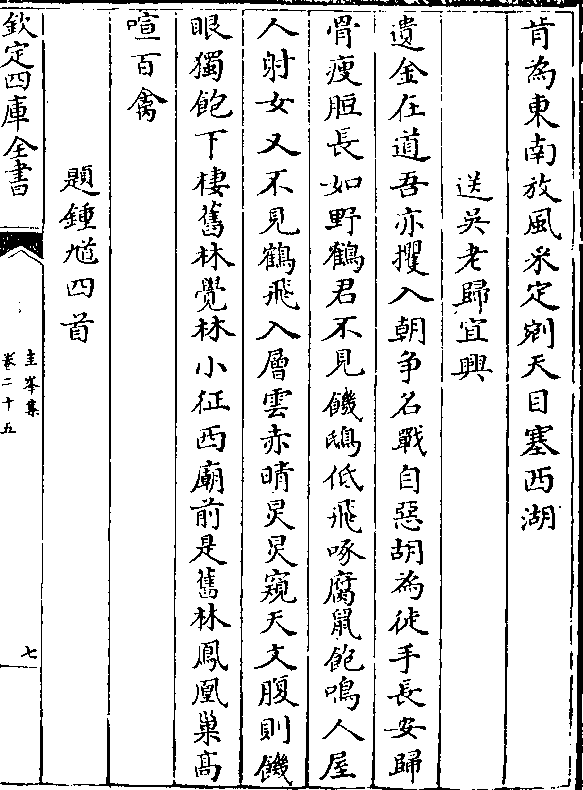 肯為東南放風采定剜天目塞西湖
送吳老歸宜興
遺金在道吾亦攫入朝争名戰自惡胡為徒手長安歸
骨瘦脰長如野鶴君不見饑鴟低飛啄腐鼠飽鳴人屋
人射女又不見鶴飛入層雲赤睛炅炅窺天文腹則饑
眼獨飽下棲舊林覺林小征西廟前是舊林鳳凰巢高
喧百禽
題鍾馗四首
欽定四庫全書
圭峯集
卷二十五
七